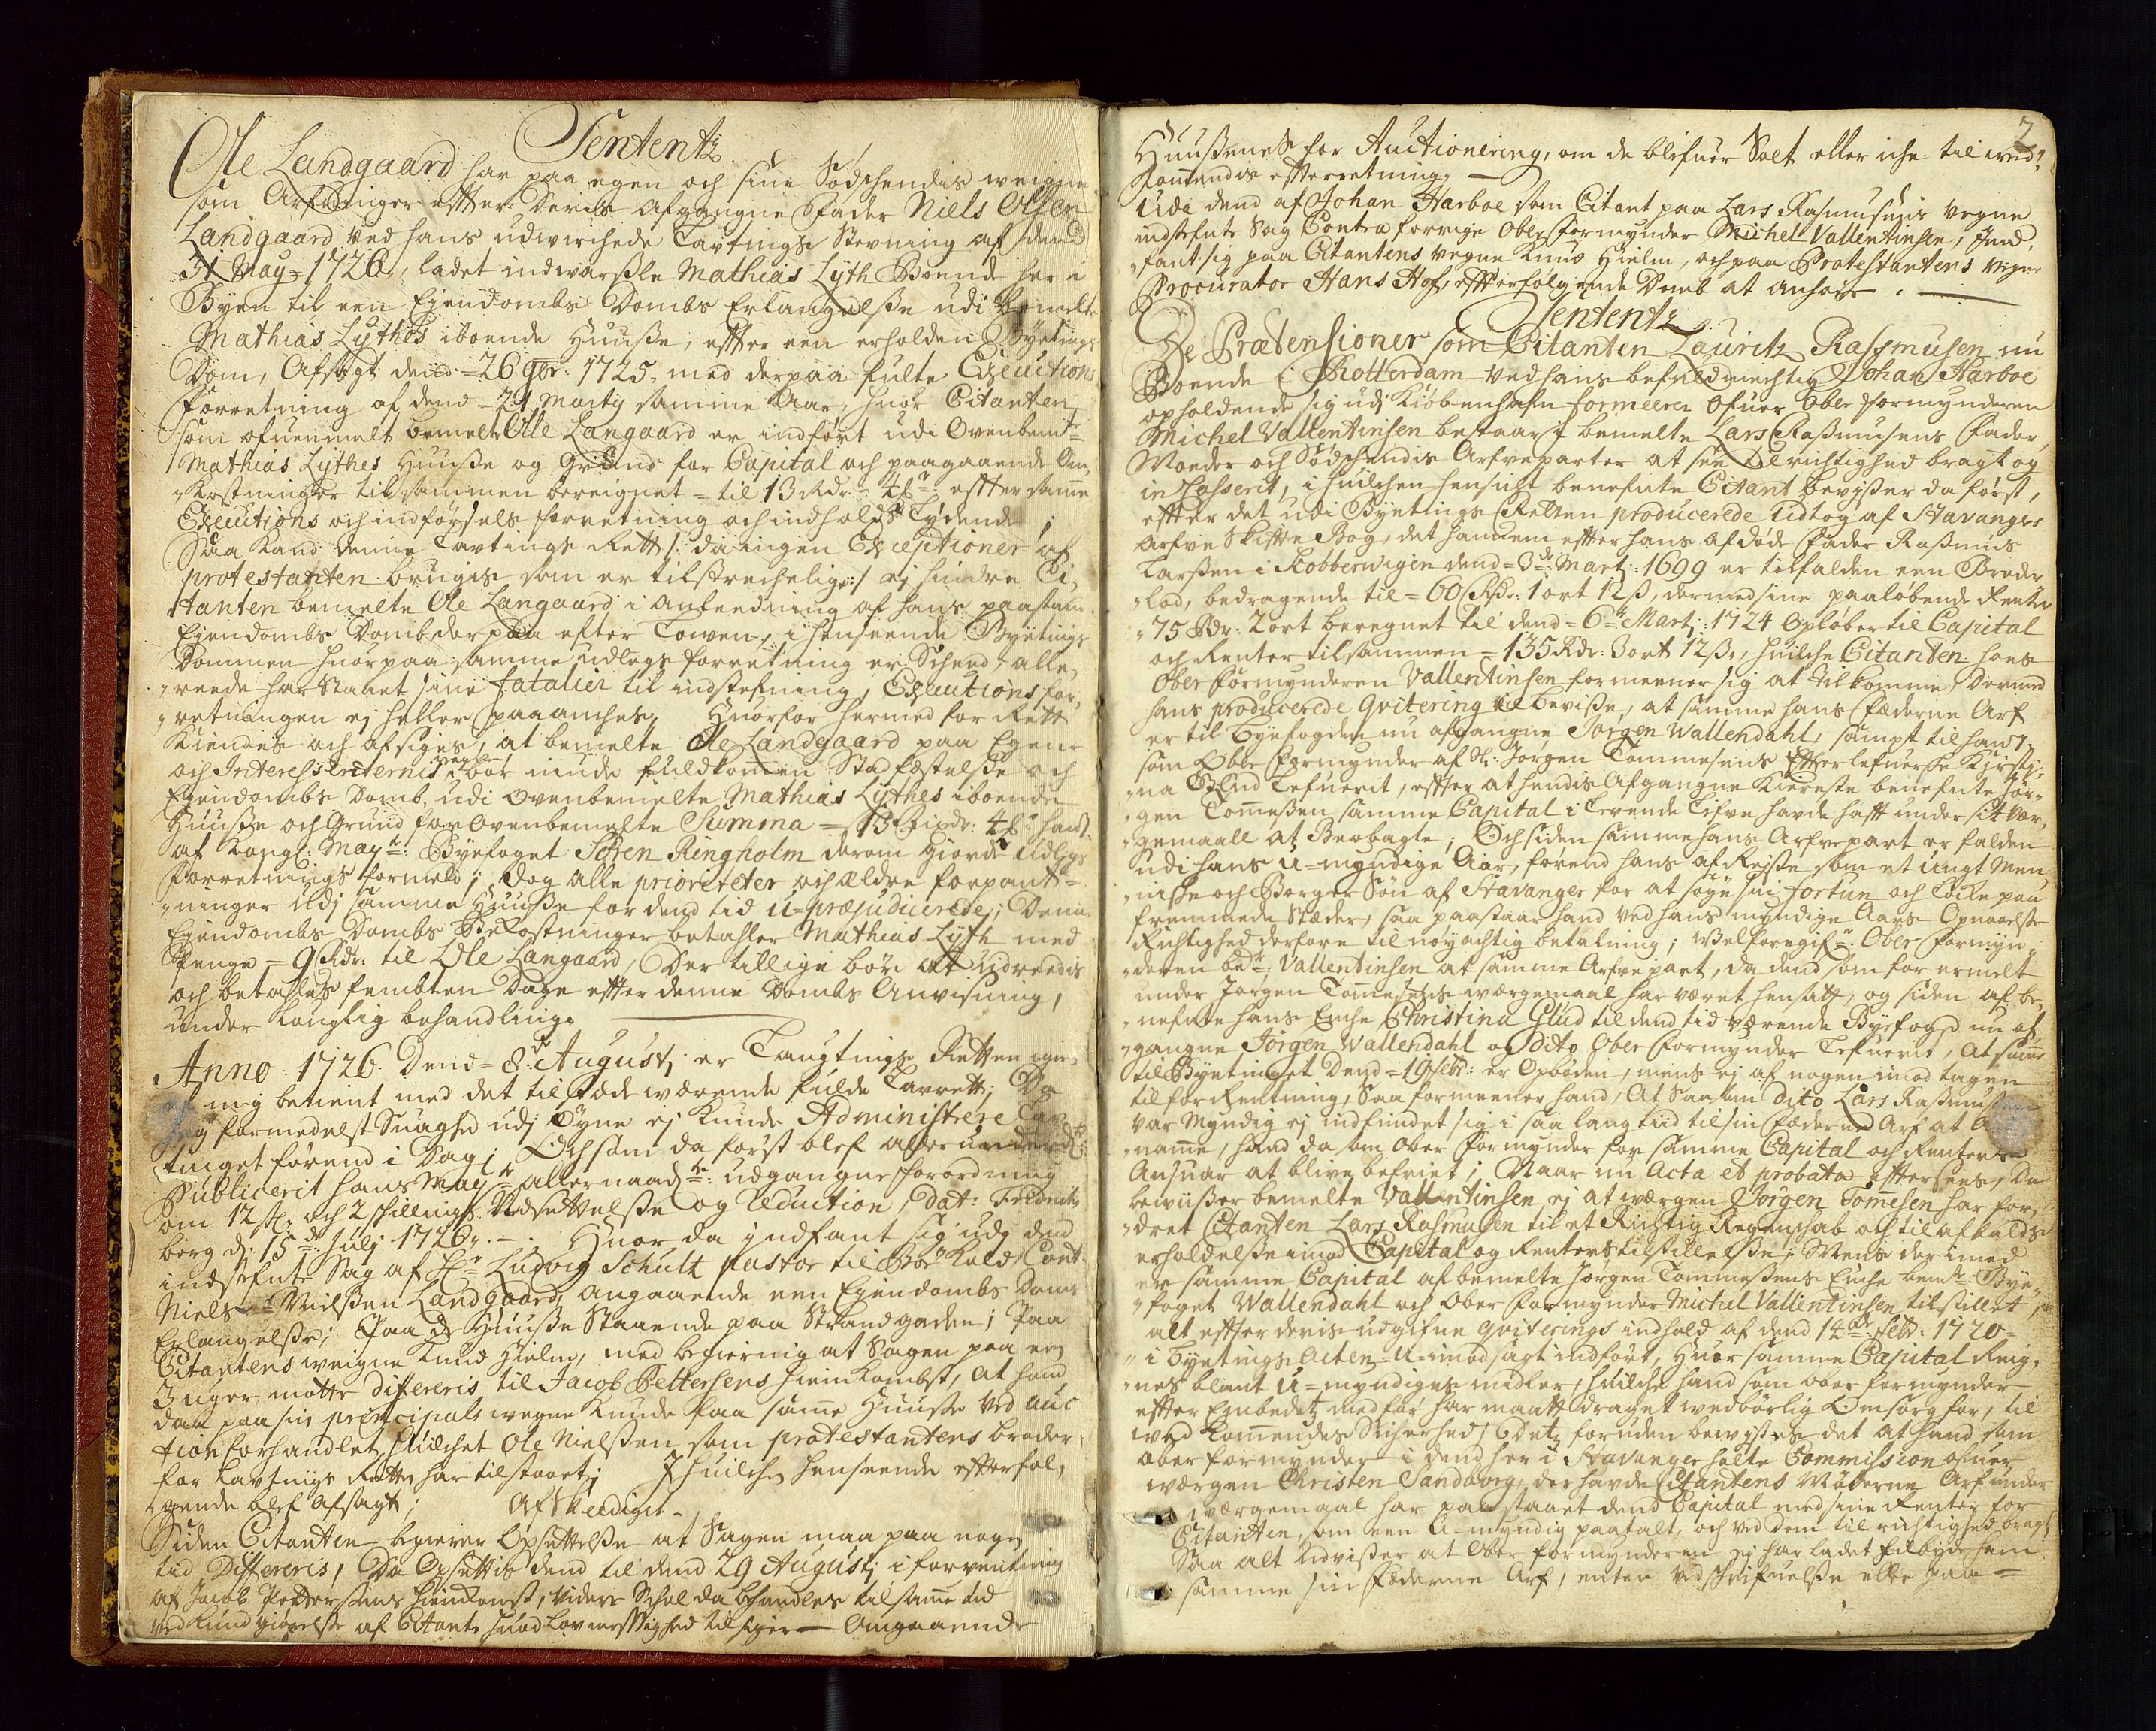 Sententz
Ole Landgaard har paa egen och sine Södschendis weigne
som Arfvinger effter Deris afgangne Fader Niels Olsen
Landgaard ved hans udwirchede Lavtings Stevning af dend
31 May = 1726, ladet indwarsle Mathias Lyth Boende her i
Byen til een Ejendombs Dombs Erlangelse udi bemelte
Mathias Lythes iboende Huusse, effter een erholden Byetings
Dom, Afsagt dend = 26 9br: 1725. med derpaa fulte Executions
Forretning af dend = 21 Marty samme Aar, huor Citanten
som ofuenmelt bemelte Olle Langaard er indfört udi Ovenbemte
Mathias Lythes Huusse og Grund for Capital och paagaaende Om
kostninger tilsammen bereignet = til 13 Rdr = 4 effter samme
Executions och indförsels forretning och indholds Tydende;
Saa kand denne Lavtings Rett /: da ingen Exceptioner af
protestanten brugis som er tilstrechelige :/ ej hindre Ci,
tanten bemelte Ole Langaard i anleedning af hans paastand
Ejendombs Domb derpaa efter Lowen, i henseende Byetings
Dommen huorpaa samme udlegs forretning er Scheed, alle,
reede har staaet sine fatalier til indstefning, Executions for,
retningen ej heller paaanches; Huorfor hermed for Rett
Kiendes och afsiges, at bemelte Ole Landgaard paa Egen
och Interessenternis vegne bör nyde fuldkommen Stadfæstelse och
Ejendombs Domb, udi Ovenbemelte Mathias Lythes iboende
Huusse och Grund for Ovenbemelte Summa = 13 Rixdr: 4 hand
af Kongl: Mayts: Byefoget Sören Ringholm derom giorde Udlegs
Forretnings formeld; dog alle prioriteter och ældre forpant=
ninger udj samme Huusse for dend tid u=præjudicerede; Denne
Ejendombs Dombs Bekostninger betahler Mathias Lyth med
Penge = 9 Rdr: til Ole Langaard, Der tillige bör at udreedis
och betahles fembten Dage effter denne Dombs Anvisning,
under Lovglig behandling.
Anno 1726. Dend = 8de August er Laugtings Retten igien
mig betient med det tilstæde wærende fulde Lavrett; Da
Jeg formedelst Svaghed udj Öyne ej kunde Administrere Lav
tinget förend i Dag; Och som da först blef
Publicerit hans Mayts allernaadste: udgangne forordning
om 12 sk. och 2 skillings Nedsettelse og Reduction, dat: Fridrichs
berg d: 15de: Julj 1726. Huor da indfant sig udj dend
indstefnte Sag af Hr Ludvig Schult pastor til Cont:
Niels Nielssen Landgaard, angaaende een Ejendombs Doms
Erlangelse; Paa et Huusse Staaende paa Strandgaden; Paa
Citantens weigne Knud Hielm, med begiering at Sagen paa en
3 uger matte differeris til Jacob Pettersens hiemkombst, at hand
daa paa sin principals wegne kunde faa samme Huusse ved auc
tion forhandlet, huilchet Ole Nielssen som protestantens broder,
for Lavtings Retten har tilstaaet; I huilchen henseende efterföl,
gende blef Afsagt; Afskeediget.
Siden Citanten begierer Opsettelse at Sagen maa paa nogen
tid Differeris, Da Opsettis dend til dend 29 Augustj i forventning
af Jacob Pettersens hiemkomst, videre Schal da behandles til samme tid
ved kundgiörelse af Citanten huad Lovmessighed tilsiger — Angaaende
2
Huussenes for Auctionering, om de blefuer Solt eller iche til ved
kommendis efterretning.
Udi dend af Johan Harboe som Citant paa Lars Rasmusens Vegne
indstefnte Sag Contra forrige Ober Formynder Michel Vallentinsen, Ind,
fant sig paa Citantens vegne Knud Hielm, och paa Protestantens vegne
Procurator Hans Hof, effterfölgende Domb at anhöre.
Sententz
De Prætensioner som Citanten Lauritz Rassmusen nu
Boende i Rotterdam ved hans befuldmechtig Johan Harboe
opholdende sig udj Kiöbenhafn formeener ofuer Ober Formynderen
Michel Vallentinsen bestaar i bemelte Lars Rasmusens Fader,
Moeder och Södschendis Arfveparter at see til richtighed bragt og
in Casserit, i huilchen hensicht benefnte Citant beviser da först,
effter det udi Byetings Retten producerede udtog af Stavangers
arfve Skifte Bog, det hannem effter hans afdöde Fader Rasmus
Larssen i Kobberwigen dend = 3de: Martj: 1699 er tilfalden een Broder
Lod, bedragende til = 60 Rdr: 1 ort 12 ß, dermed sine paalöbende Renter
75 Rdr: 2 ort beregnet til dend = 6te Martj: 1724 Oplöber til Capital
och Renter tilsammen = 135 Rdr: 3 ort 12 ß, huilche Citanten hoes
Ober Formynderen Vallentinsen formeener sig at tilkomme, dermed
hans producerede Qvitering til beviisse, at samme hans Fæderne Arf
er til Byefogden nu afgangne Jörgen Wallendahl, sampt til ham
som Ober Formynder af Sl: Jörgen Tommesens Effterlefuerske Kirsti,
na Glud Lefuerit, effter at hendis Afgangne Kiereste benefnte Jör,
gen Tommesen samme Capital i Levende Lifve hafde hafft under sit Vær,
gemaall at Beobagte; Och siden samme hans Arfvepart er falden
udi hans u=myndige Aar, förend hans afReise som et ungt Men,
niske och Borger Sön af Stavanger for at söge sin fortun och Lÿke paa
fremmede Stæder, saa paastaar hand ved hans myndige Aars Opnaaelse
Richtighed derfore til nöyachtig betalning; Ober Formyn,
deren bete: Vallentinsen at samme Arfvepart, da dend som for ermelt
under Jörgen Tommesens wærgemaal har været hensatt, og siden af be,
nefnte hans Enche Christina Glud til dend tid værende Byefoged nu af,
gangne Jörgen Wallendahl og dito Ober Formynder Lefuerit, at samme
til Byetinget Dend = 19 febr: er Opböden, mens ej af nogen imod tagen
til forRentning, Saa formeener hand, At Saasom dito Lars Rasmusen
var Myndig ej indfindet sig i saa lang tiid til sin fæderne Arf at
namme, hand da som Ober formynder for samme Capital och Renter
Ansuar at blive befriet; Naar nu Acta et probata efftersees, Da
beviisser bemelte Vallentinsen ej at wærgen Jörgen Tommesen har for,
dret Citanten Lars Rasmusen til et Richtig Regenschab och til afkalds
erholdelse imod Capital og Renters tilstillelse; Mens derimod
er samme Capital af bemelte Jörgen Tommesens Enche bemte: Bye,
foget Wallendahl och Ober Formynder Michel Vallentinsen tilstillet,
alt effter deris udgifne qviterings indhold af dend 14de: febr: 1720
i Byetings Acten = u=imodsagt indfört, Huor samme Capital Reig,
nes blant u=myndiges midler, huilche hand som ober formynder
effter Embedetz medför har maatt draget wedbörlig Omsorg for, til
ved kommendes Sicherhed; Detz foruden bewises det at hand som
ober formynder i dend her i Stavanger holte Commission ofuer
wærgen Christen Sandborg, der hafde Citantens Möderne Arf under
wærgemaal har paastaaet dend Capital med sine Renter for
Citanten, som een u=myndig paatalt, och ved dom til richtighed bragt,
Saa alt udviser at Ober formynderen ej har ladet tilbyde ham
samme sin Fæderne Arf, enten ved schrifvelse eller paa =